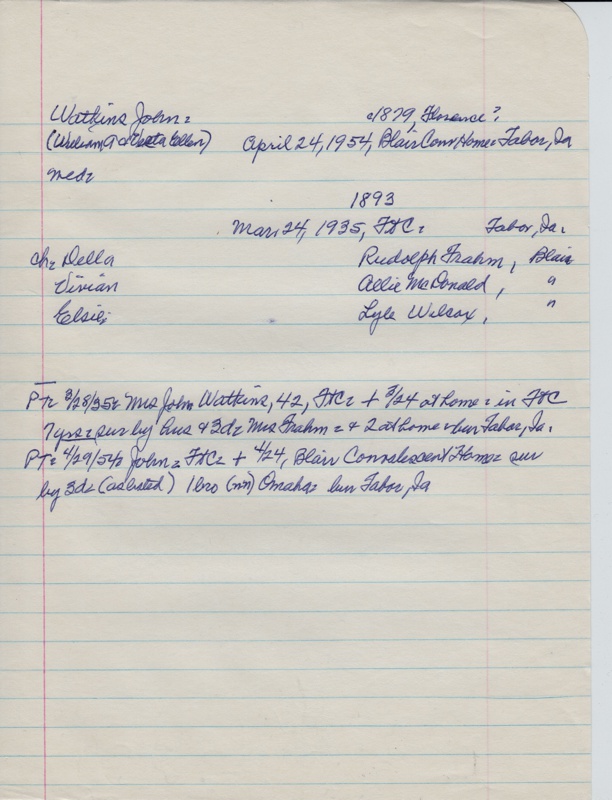 Watkins John: c1879, Florence?
(William T & Vesta Ellen) April 24, 1954, Blair Conv Home: Tabor, Ia
med:
1893
Mar. 24, 1935, FtC: Tabor, Ia.
ch: Della Rudolph Frahm, Blair
Vivian Allie McDonald, "
Elsie: Lyle Wilcox, "
PT: 3/28/35: Mrs John Watkins, 42, FtC: + 3/24 at home: in FtC
7yrs: sur by hus & 3d: Mrs Frahm: & 2 at home: bur Tabor, Ia.
PT: 4/29/54: John: FtC: + 4/24, Blair Convalescent Home: sur
by 3d: (as listed) 1 bro (nn) Omaha: bur Tabor, Ia